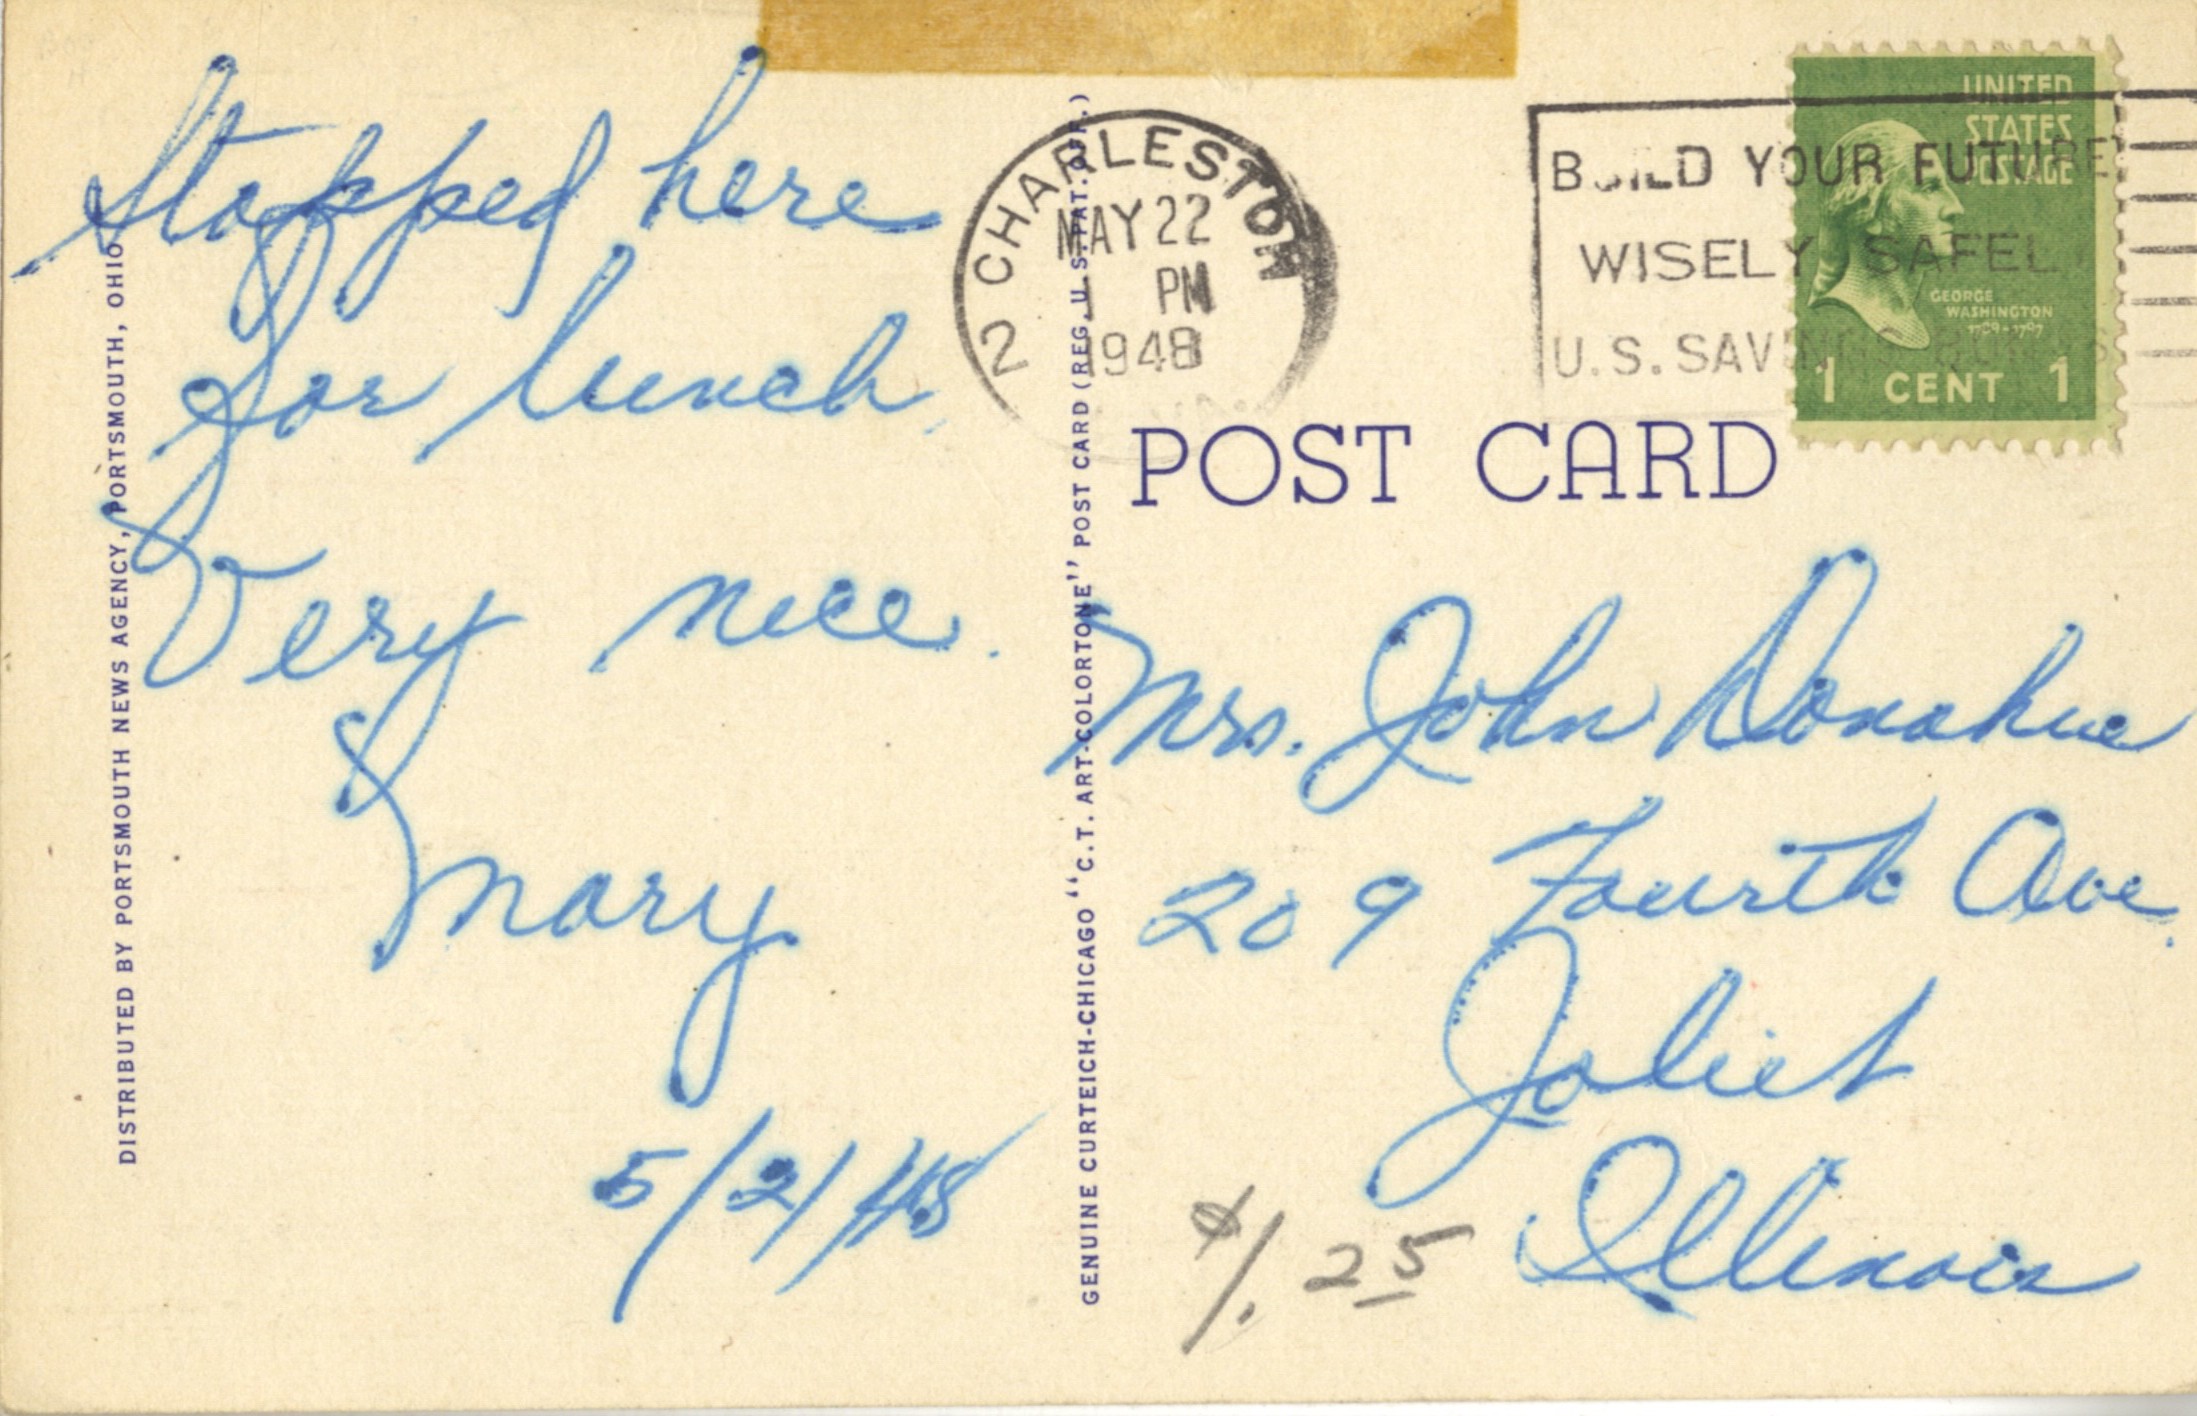 Stopped here
for lunch.
Very nice.
Mary
5/21/48
DISTRIBUTED BY PORTSMOUTH NEWS AGENCY, PORTSMOUTH, OHIO
GENUINE CURTEICH-CHICAGO "C.T. ART-COLORTONE" POST CARD (REG. U.S. PAT. OFF.)
CHARLESTON 2
MAY 22
1 PM
1948
W.VA.
BUILD YOUR FUTURE
WISELY SAFELY
U.S. SAVINGS BONDS
UNITED
STATES
POSTAGE
GEORGE
WASHINGTON
1789-1797
1 CENT 1
POST CARD
Mrs. John Donahue
209 Fourth Ave.
Joliet
Illinois
$1.25